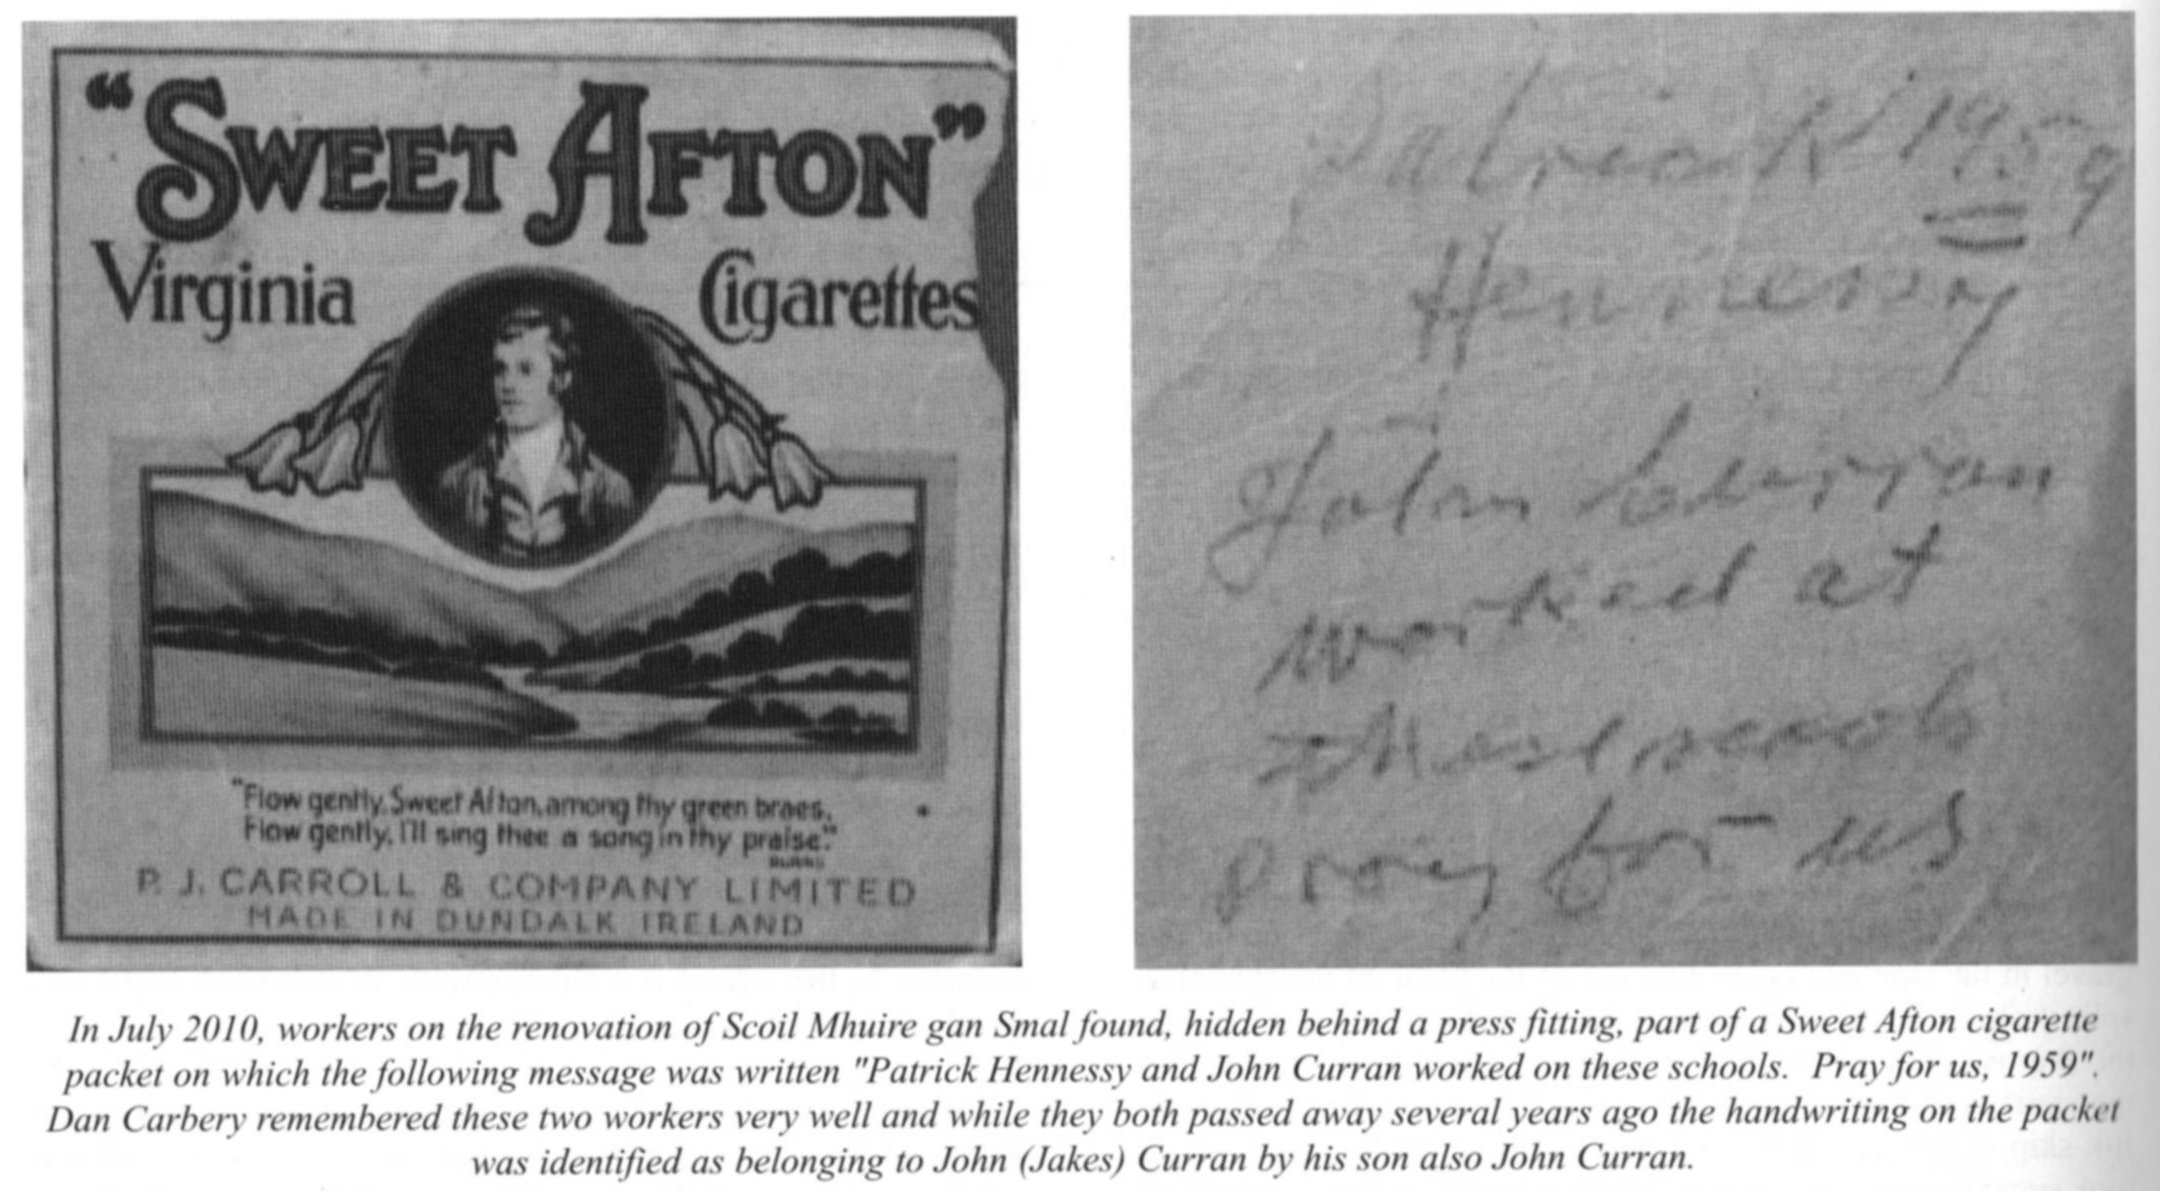 "SWEET AFTON"
Virginia Cigarettes
"Flow gently, Sweet Afton, among thy green braes,
Flow gently, I'll sing thee a song in thy praise."
BURNS
P. J. CARROLL & COMPANY LIMITED
MADE IN DUNDALK IRELAND
Patrick 1959
Hennessy
John Curran
worked at
pray for us
In July 2010, workers on the renovation of Scoil Mhuire gan Smal found, hidden behind a press fitting, part of a Sweet Afton cigarette
packet on which the following message was written "Patrick Hennessy and John Curran worked on these schools. Pray for us, 1959".
Dan Carbery remembered these two workers very well and while they both passed away several years ago the handwriting on the packet
was identified as belonging to John (Jakes) Curran by his son also John Curran.